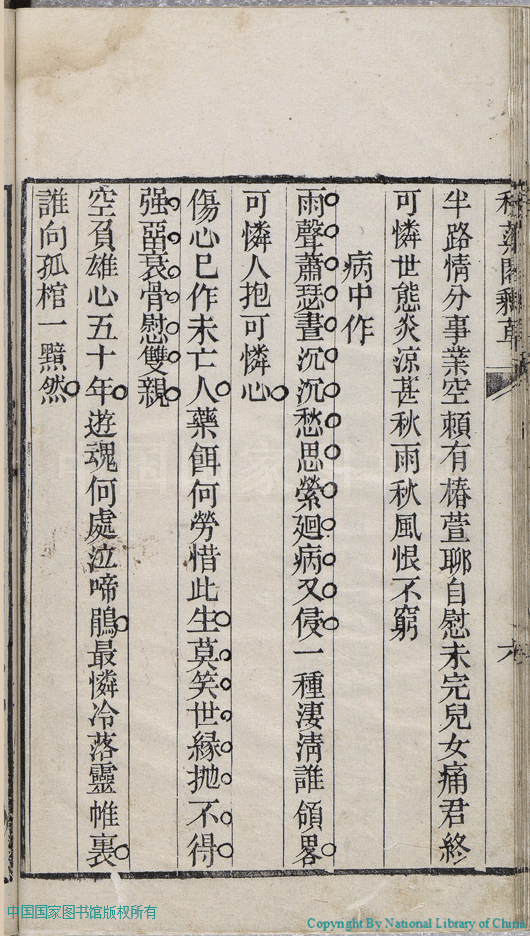 半路情分事業空頼有椿萱聊自慰未完兒女痛君終
可憐世態炎涼甚秋雨秋風恨不窮
病中作
雨聲蕭瑟晝沉沉愁思縈廻病又侵一種淒淸誰領畧
可憐人抱可憐心
傷心已作未亡人藥餌何勞惜此生莫笑世緣抛不得
强畱衰骨慰雙親
空負雄心五十年遊魂何處泣啼鵑最憐冷落靈帷裏
誰向孤棺一黯然
中国国家图书馆版权所有
Copyright By National Library of China